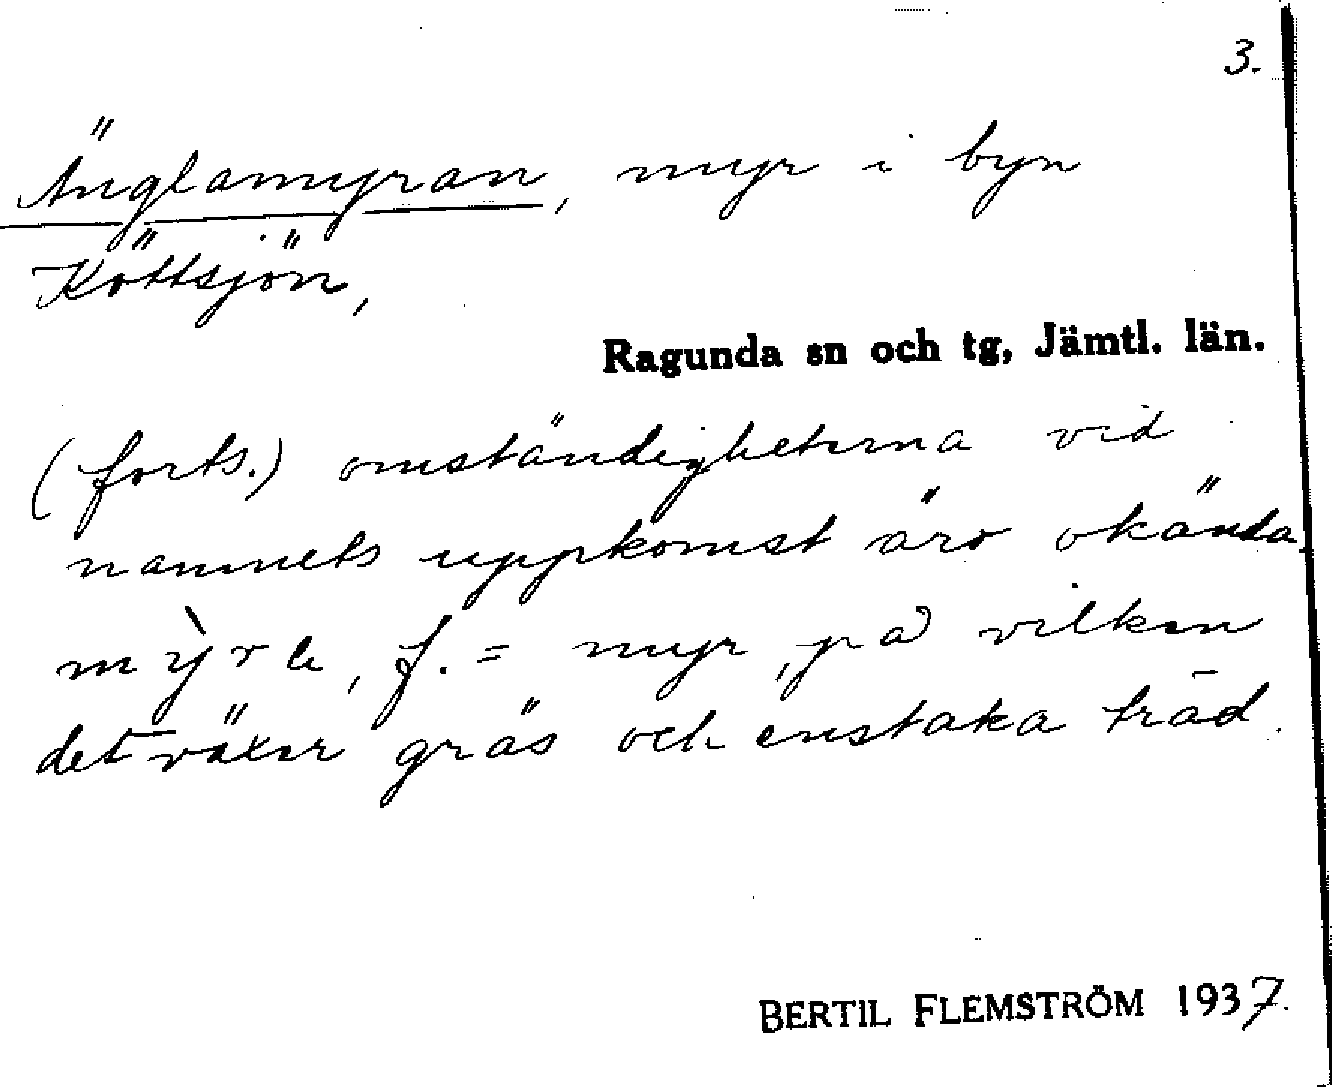 3.
Änglamyran, myr i byn
Köttsjön,
Ragunda sn och tg, Jämtl. län.
(forts.) omständigheterna vid
namnets uppkomst äro okända.
f. = myr, på vilken
det växer gräs och enstaka träd.
BERTIL FLEMSTRÖM 1937.